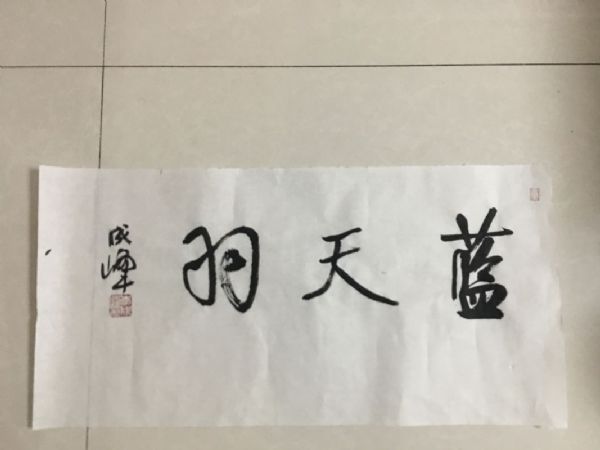 蓝天羽
成峰